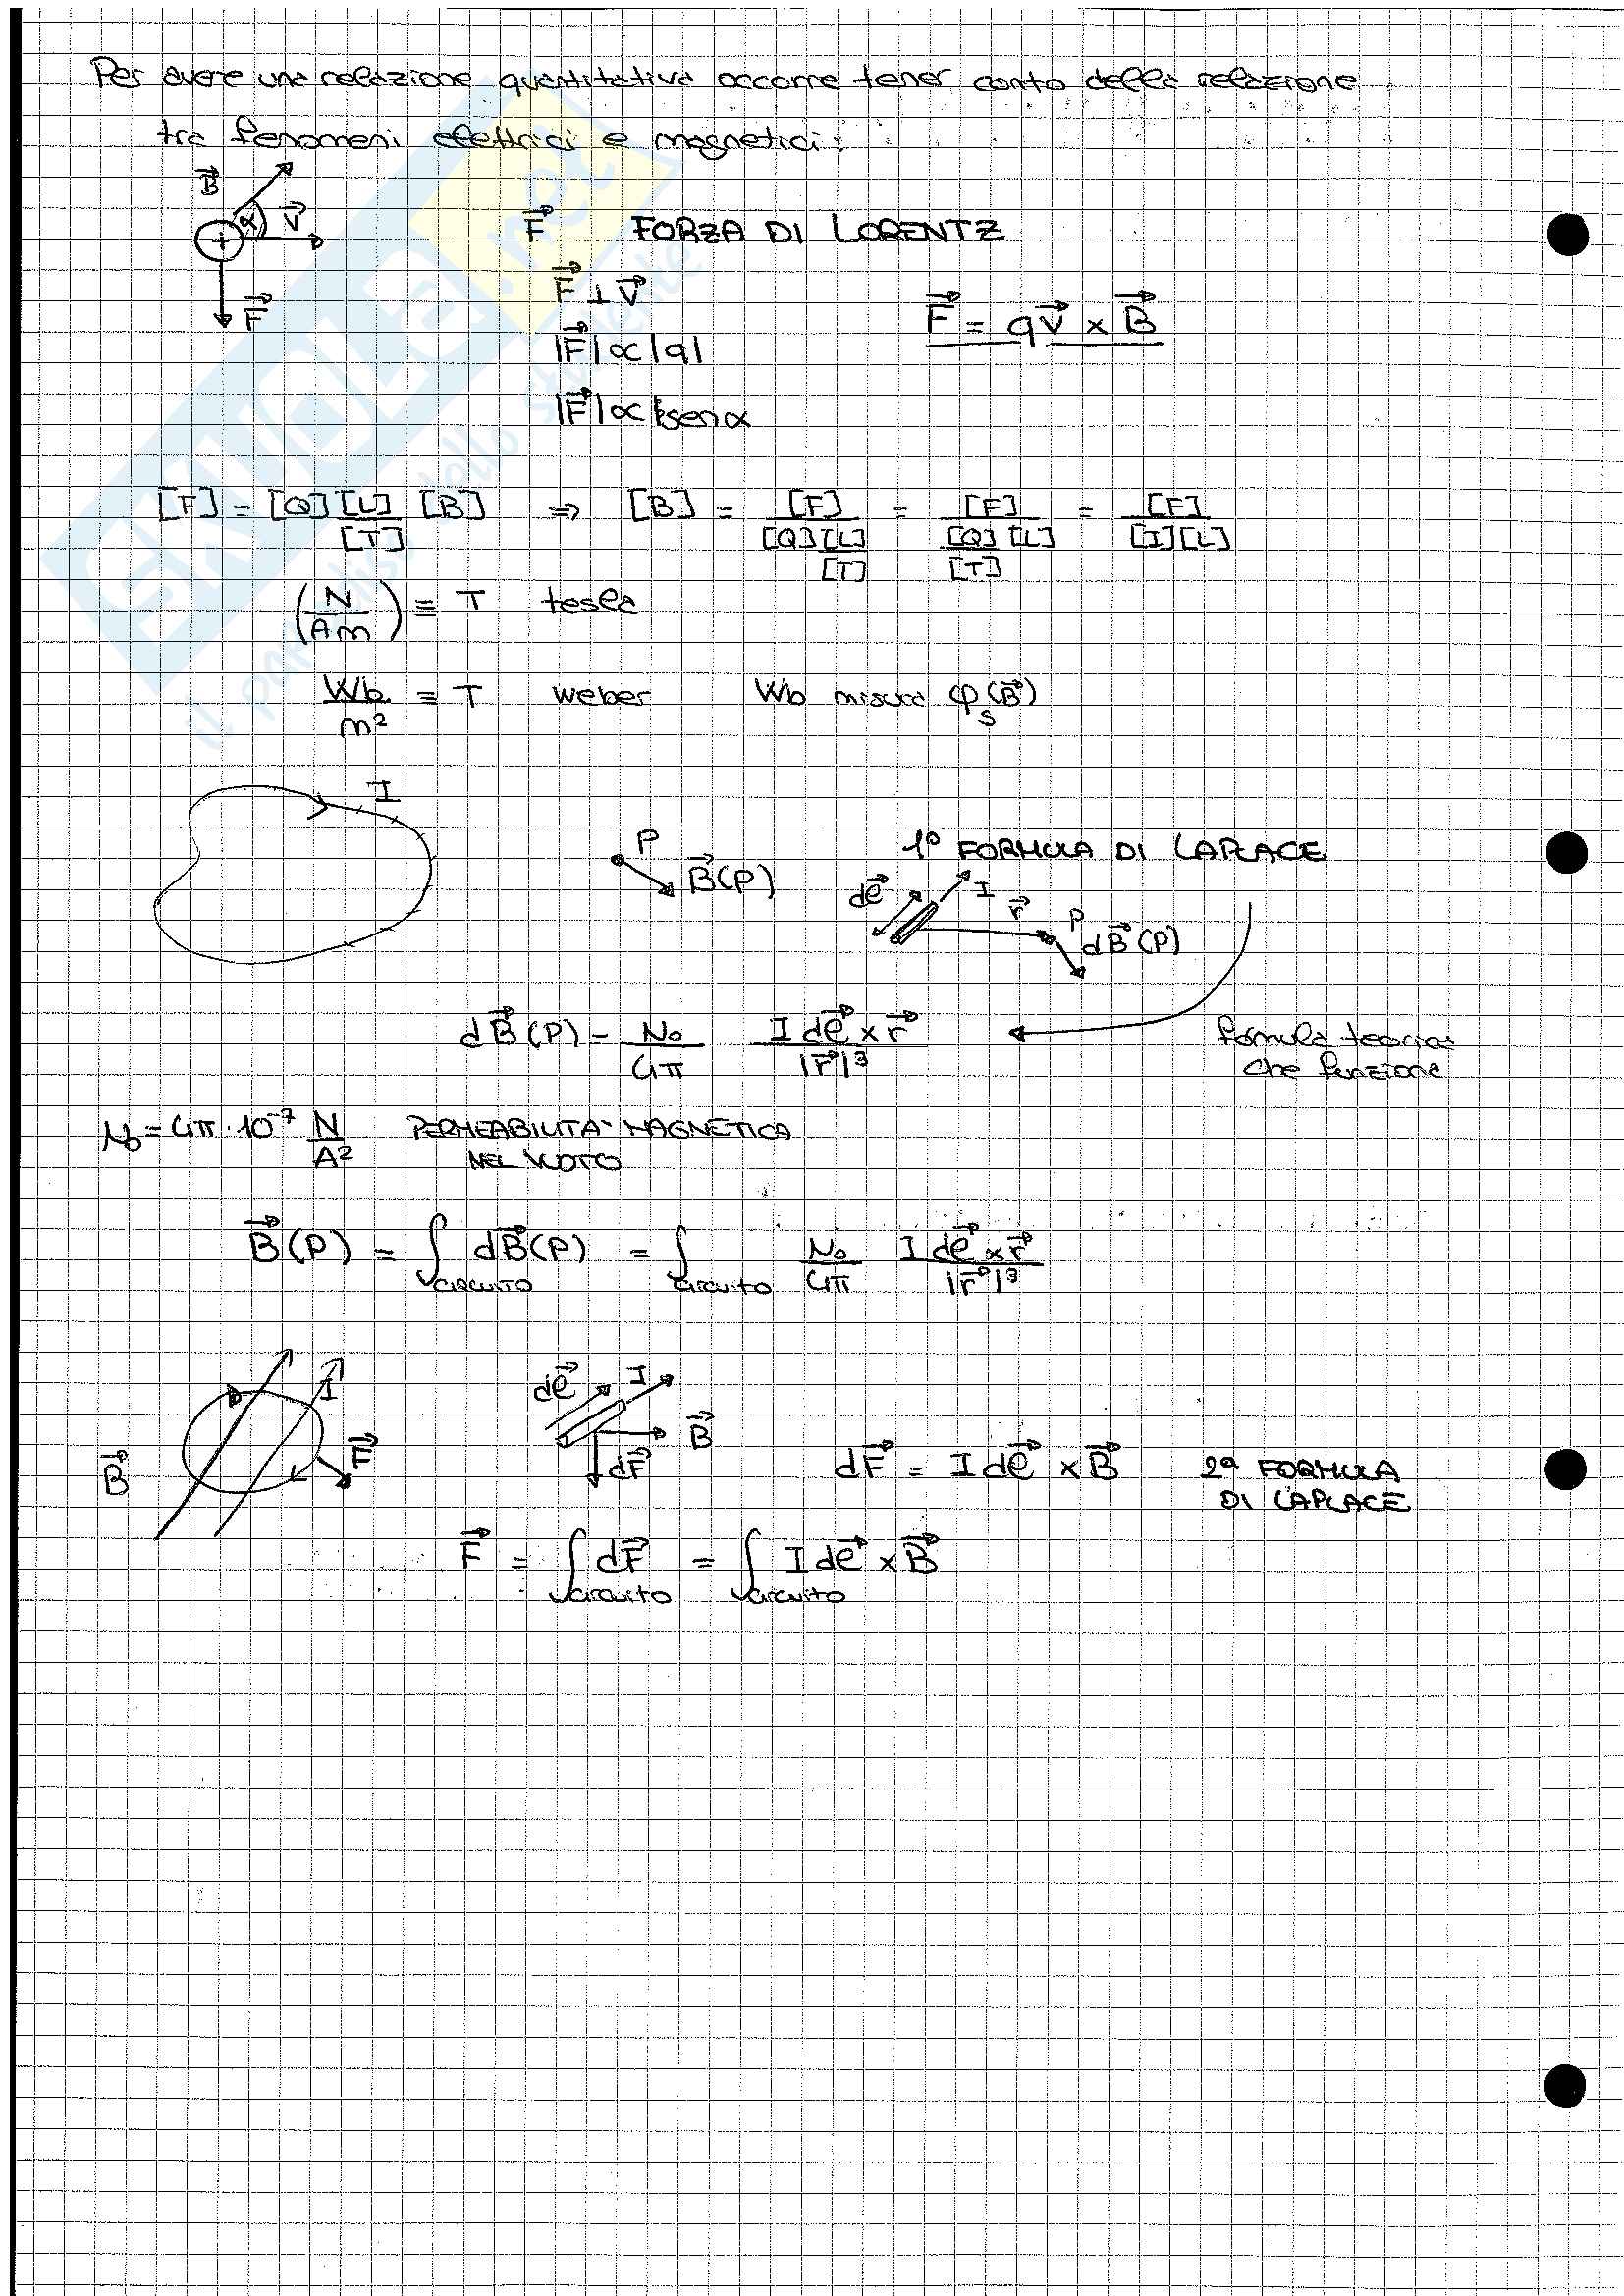 Per avere una relazione quantitativa occorre tener conto della relazione
tra fenomeni elettrici e magnetici:
B⃗
α v⃗
+
F⃗
F⃗ FORZA DI LORENTZ
F⃗ ⊥ v⃗
F⃗ = q v⃗ × B⃗
|F⃗| ∝ |q|
|F⃗| ∝ |senα
[F] = [Q] [L]/[T] [B] ⇒ [B] = [F]/([Q][L]/[T]) = [F]/([Q]/[T] [L]) = [F]/([I][L])
(N/Am) = T tesla
Wb/m² = T weber Wb misura φ_S(B⃗)
I
P
B⃗(P)
1° FORMULA DI LAPLACE
dl⃗ I r⃗ P
dB⃗(P)
dB⃗(P) = μ₀/4π I dl⃗ × r⃗/|r⃗|³
formula teorica
che funziona
μ₀ = 4π · 10⁻⁷ N/A² PERMEABILITA' MAGNETICA
NEL VUOTO
B⃗(P) = ∫CIRCUITO dB⃗(P) = ∫circuito μ₀/4π I dl⃗ × r⃗/|r⃗|³
I
B⃗
F⃗
dl⃗ I
B⃗
dF⃗
dF⃗ = I dl⃗ × B⃗ 2ª FORMULA
DI LAPLACE
F⃗ = ∫circuito dF⃗ = ∫circuito I dl⃗ × B⃗